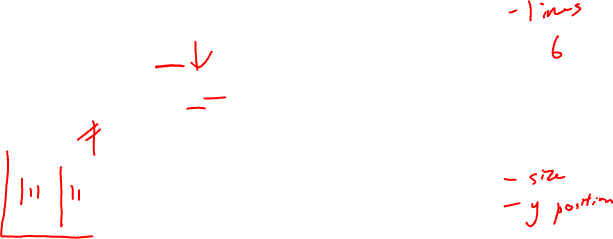 - lines
6
- size
- y position